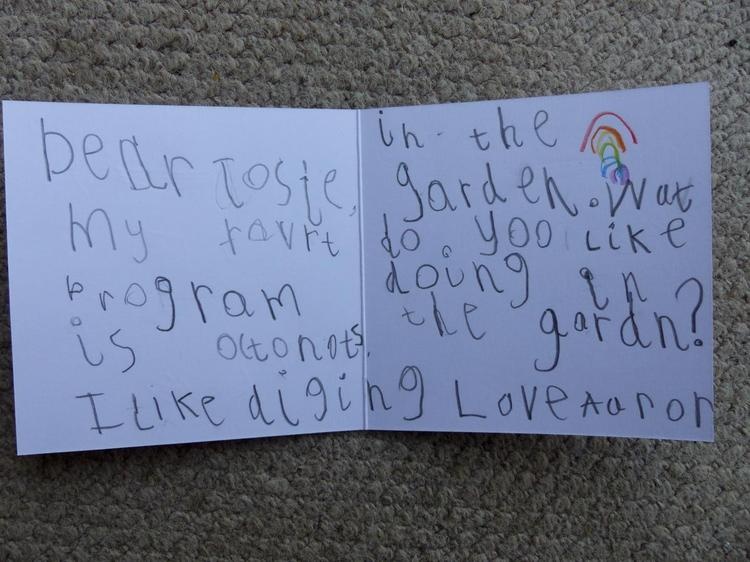 Dear Josie,
My favrt
program
is octonots.
I Like diging
in the
garden. Wat
do you Like
doing in
the gardn?
Love Aaron